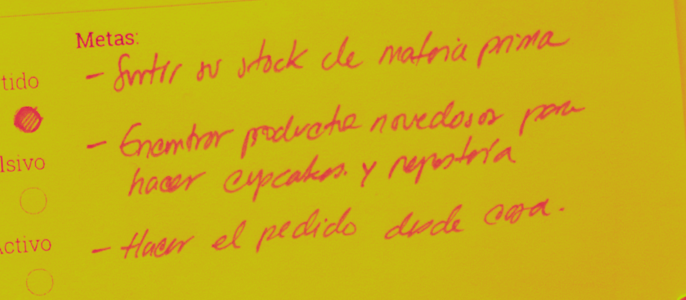 Metas:
- Surtir su stock de materia prima
tido
- Encontrar productos novedosos para
hacer cupcakes. y repostería
lsivo
- Hacer el pedido desde casa.
ctivo